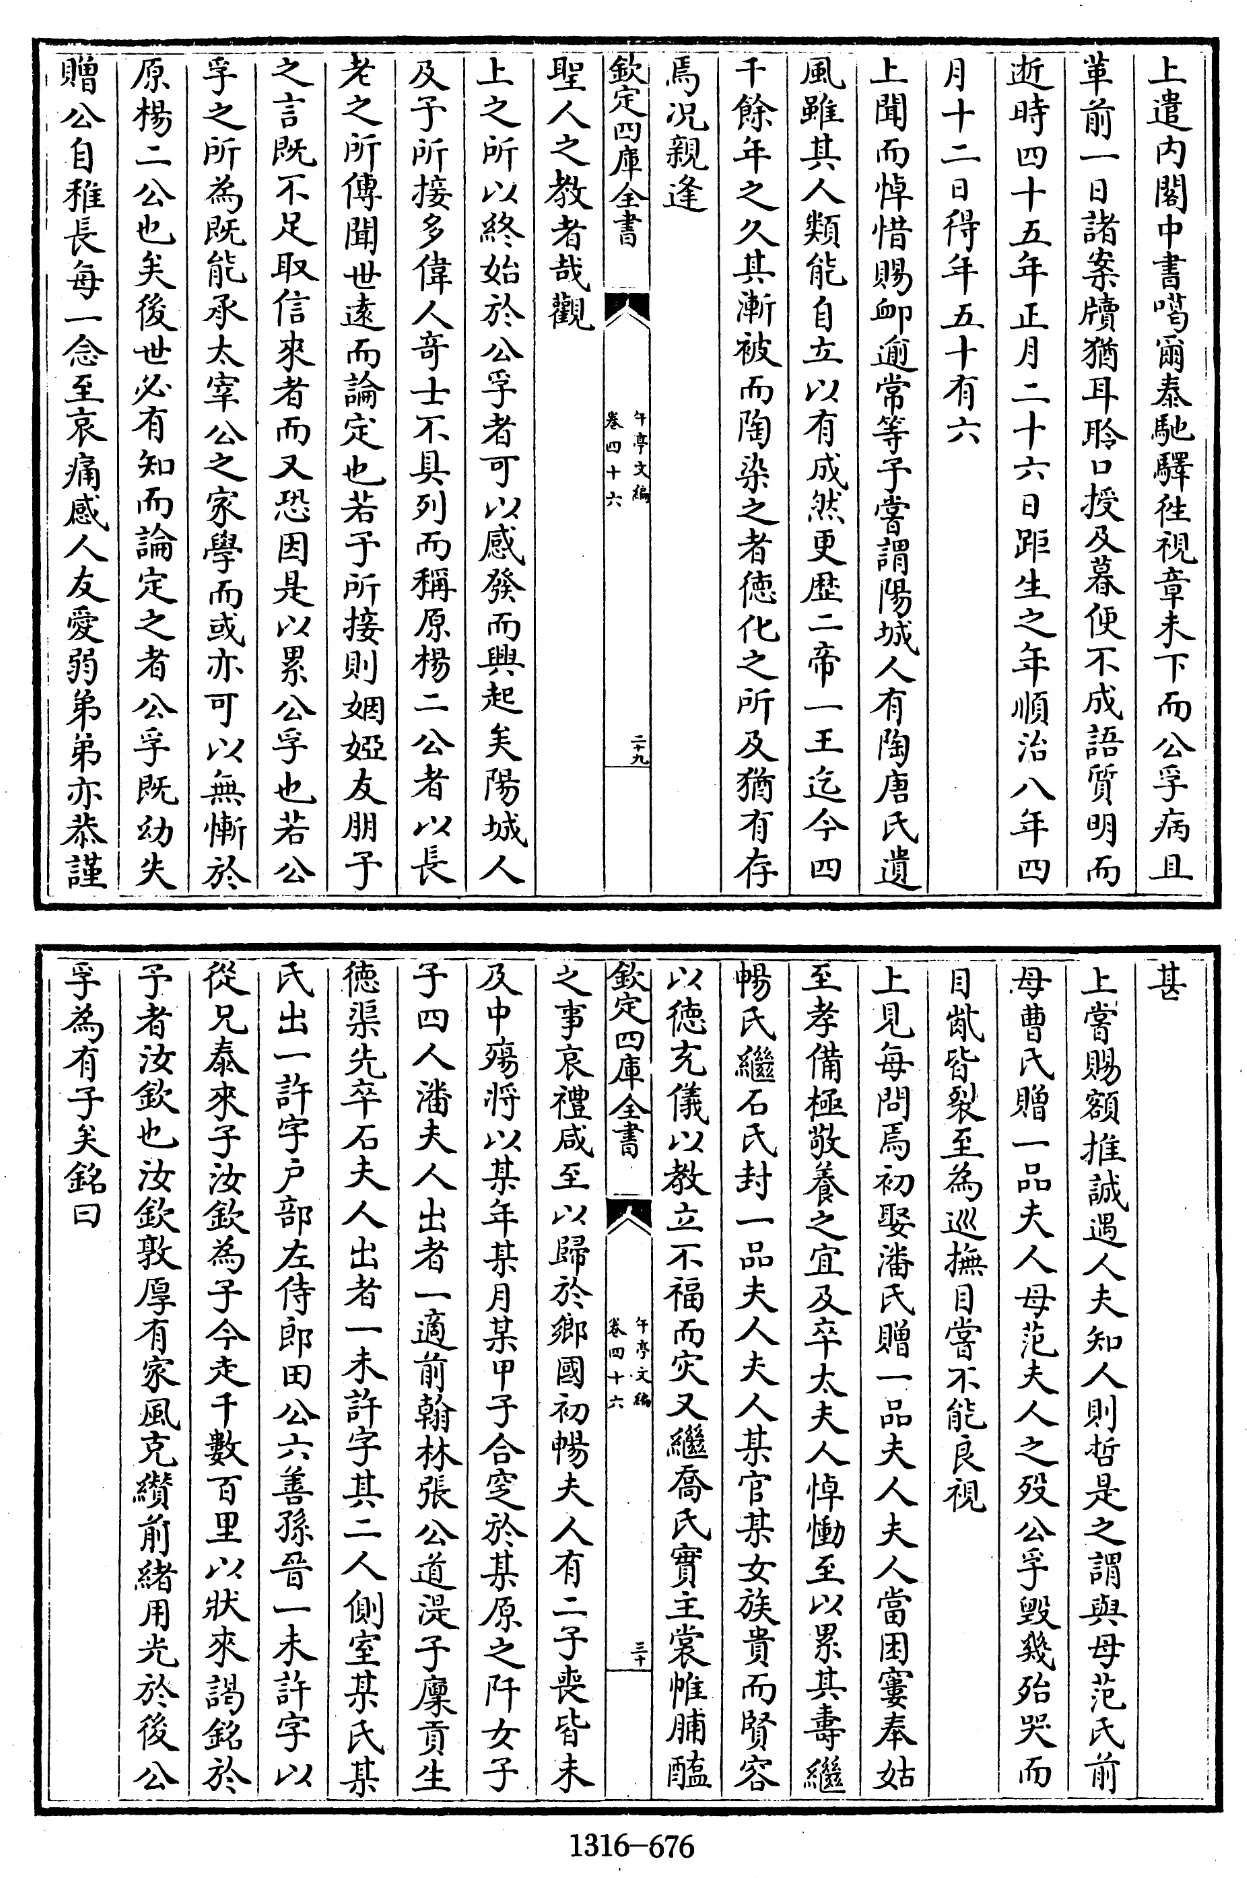 上遣内閣中書噶爾泰馳驛徃視章未下而公孚病且
革前一日諸案牘猶耳聆口授及暮便不成語質明而
逝時四十五年正月二十六日距生之年順治八年四
月十二日得年五十有六
上聞而悼惜賜卹逾常等予嘗謂陽城人有陶唐氏遺
風雖其人類能自立以有成然更歷二帝一王迄今四
千餘年之久其漸被而陶染之者德化之所及猶有存
焉况親逢
欽定四庫全書
午亭文編
卷四十六
二十九
聖人之教者哉觀
上之所以終始於公孚者可以感發而興起矣陽城人
及予所接多偉人竒士不具列而稱原楊二公者以長
老之所傳聞世逺而論定也若予所接則姻婭友朋予
之言既不足取信來者而又恐因是以累公孚也若公
孚之所為既能承太宰公之家學而或亦可以無慚於
原楊二公也矣後世必有知而論定之者公孚既幼失
贈公自稚長每一念至哀痛感人友愛弱弟弟亦恭謹
甚
上嘗賜額推誠遇人夫知人則哲是之謂與母范氏前
母曹氏贈一品夫人母范夫人之殁公孚毀幾殆哭而
目眥皆裂至為巡撫目嘗不能良視
上見每問焉初娶潘氏贈一品夫人夫人當困窶奉姑
至孝備極敬養之宜及卒太夫人悼慟至以累其壽繼
暢氏繼石氏封一品夫人夫人某官某女族貴而賢容
以德充儀以教立不福而灾又繼喬氏實主裳帷脯醢
欽定四庫全書
午亭文編
卷四十六
三十
之事哀禮咸至以歸於鄉國初暢夫人有二子喪皆未
及中殤將以某年某月某甲子合窆於某原之阡女子
子四人潘夫人出者一適前翰林張公道湜子廩貢生
德渠先卒石夫人出者一未許字其二人側室某氏某
氏出一許字户部左侍郎田公六善孫晉一未許字以
從兄泰來子汝欽為子今走千數百里以狀來謁銘於
予者汝欽也汝欽敦厚有家風克纘前緒用光於後公
孚為有子矣銘曰
1316-676